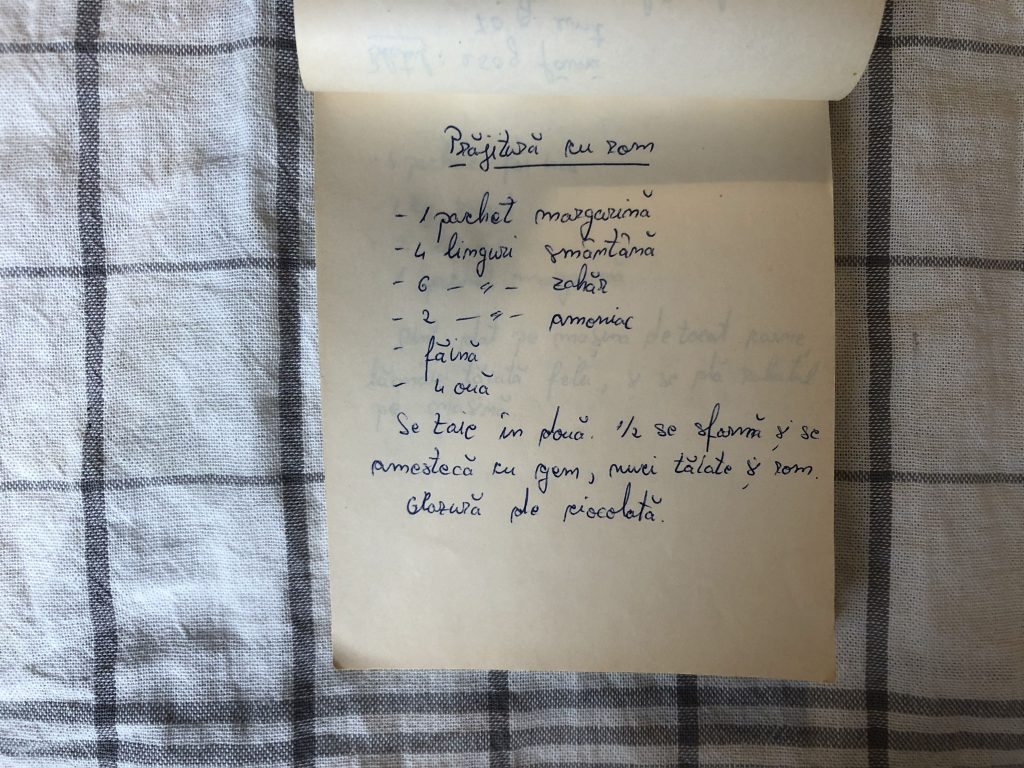 Prăjitură cu rom
- 1 pachet margarină
- 4 linguri smântână
- 6 -〃 - zahăr
- 2 - 〃 - amoniac
- făină
- 4 ouă
Se taie în două. 1/2 se sfarmă și se
amestecă cu gem, nuci tăiate și rom.
Glazură de ciocolată.